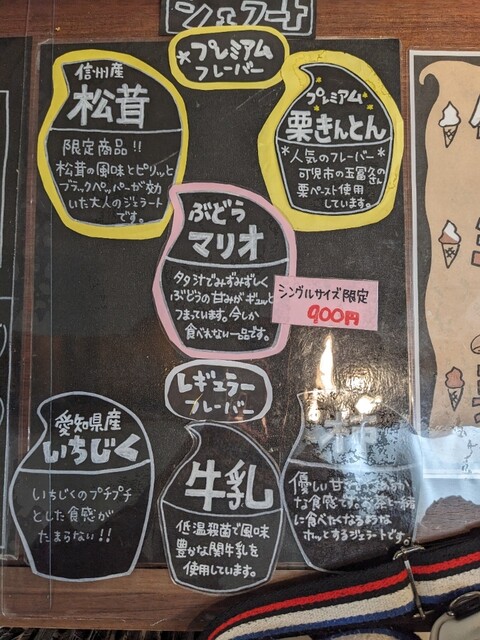 ジェラート
*プレミアム
フレーバー
信州産
松茸
限定商品!!
松茸の風味とピリッと
ブラックペッパーが効
いた大人のジェラート
です。
プレミアム
栗きんとん
*人気のフレーバー*
可児市の玉冨久さん
栗ペースト使用
しています。
ぶどう
マリオ
タタ汁でみずみずしく
ぶどうの甘みがギュッと
つまっています。今しか
食べれない一品です。
シングルサイズ限定
900円
レギュラー
フレーバー
愛知県産
いちじく
いちじくのプチプチ
とした食感が
たまらない!!
牛乳
低温殺菌で風味
豊かな関牛乳を
使用しています。
優しい甘さ
な食感です。お茶と一緒
に食べたくなるような
ホッとするジェラートです。